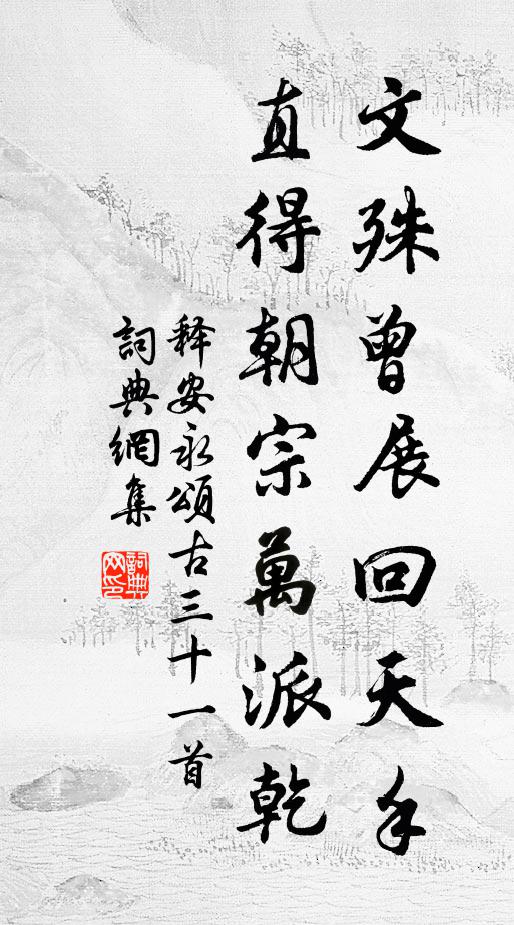 文殊曾展回天手
直得朝宗萬派乾
释安永頌古三十一首
詞典網集
詞典网印